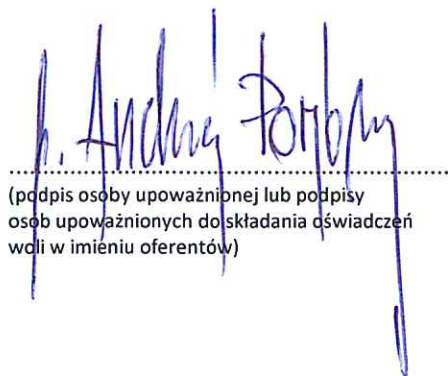 Andrzej
(podpis osoby upoważnionej lub podpisy
osób upoważnionych do składania oświadczeń
woli w imieniu oferentów)